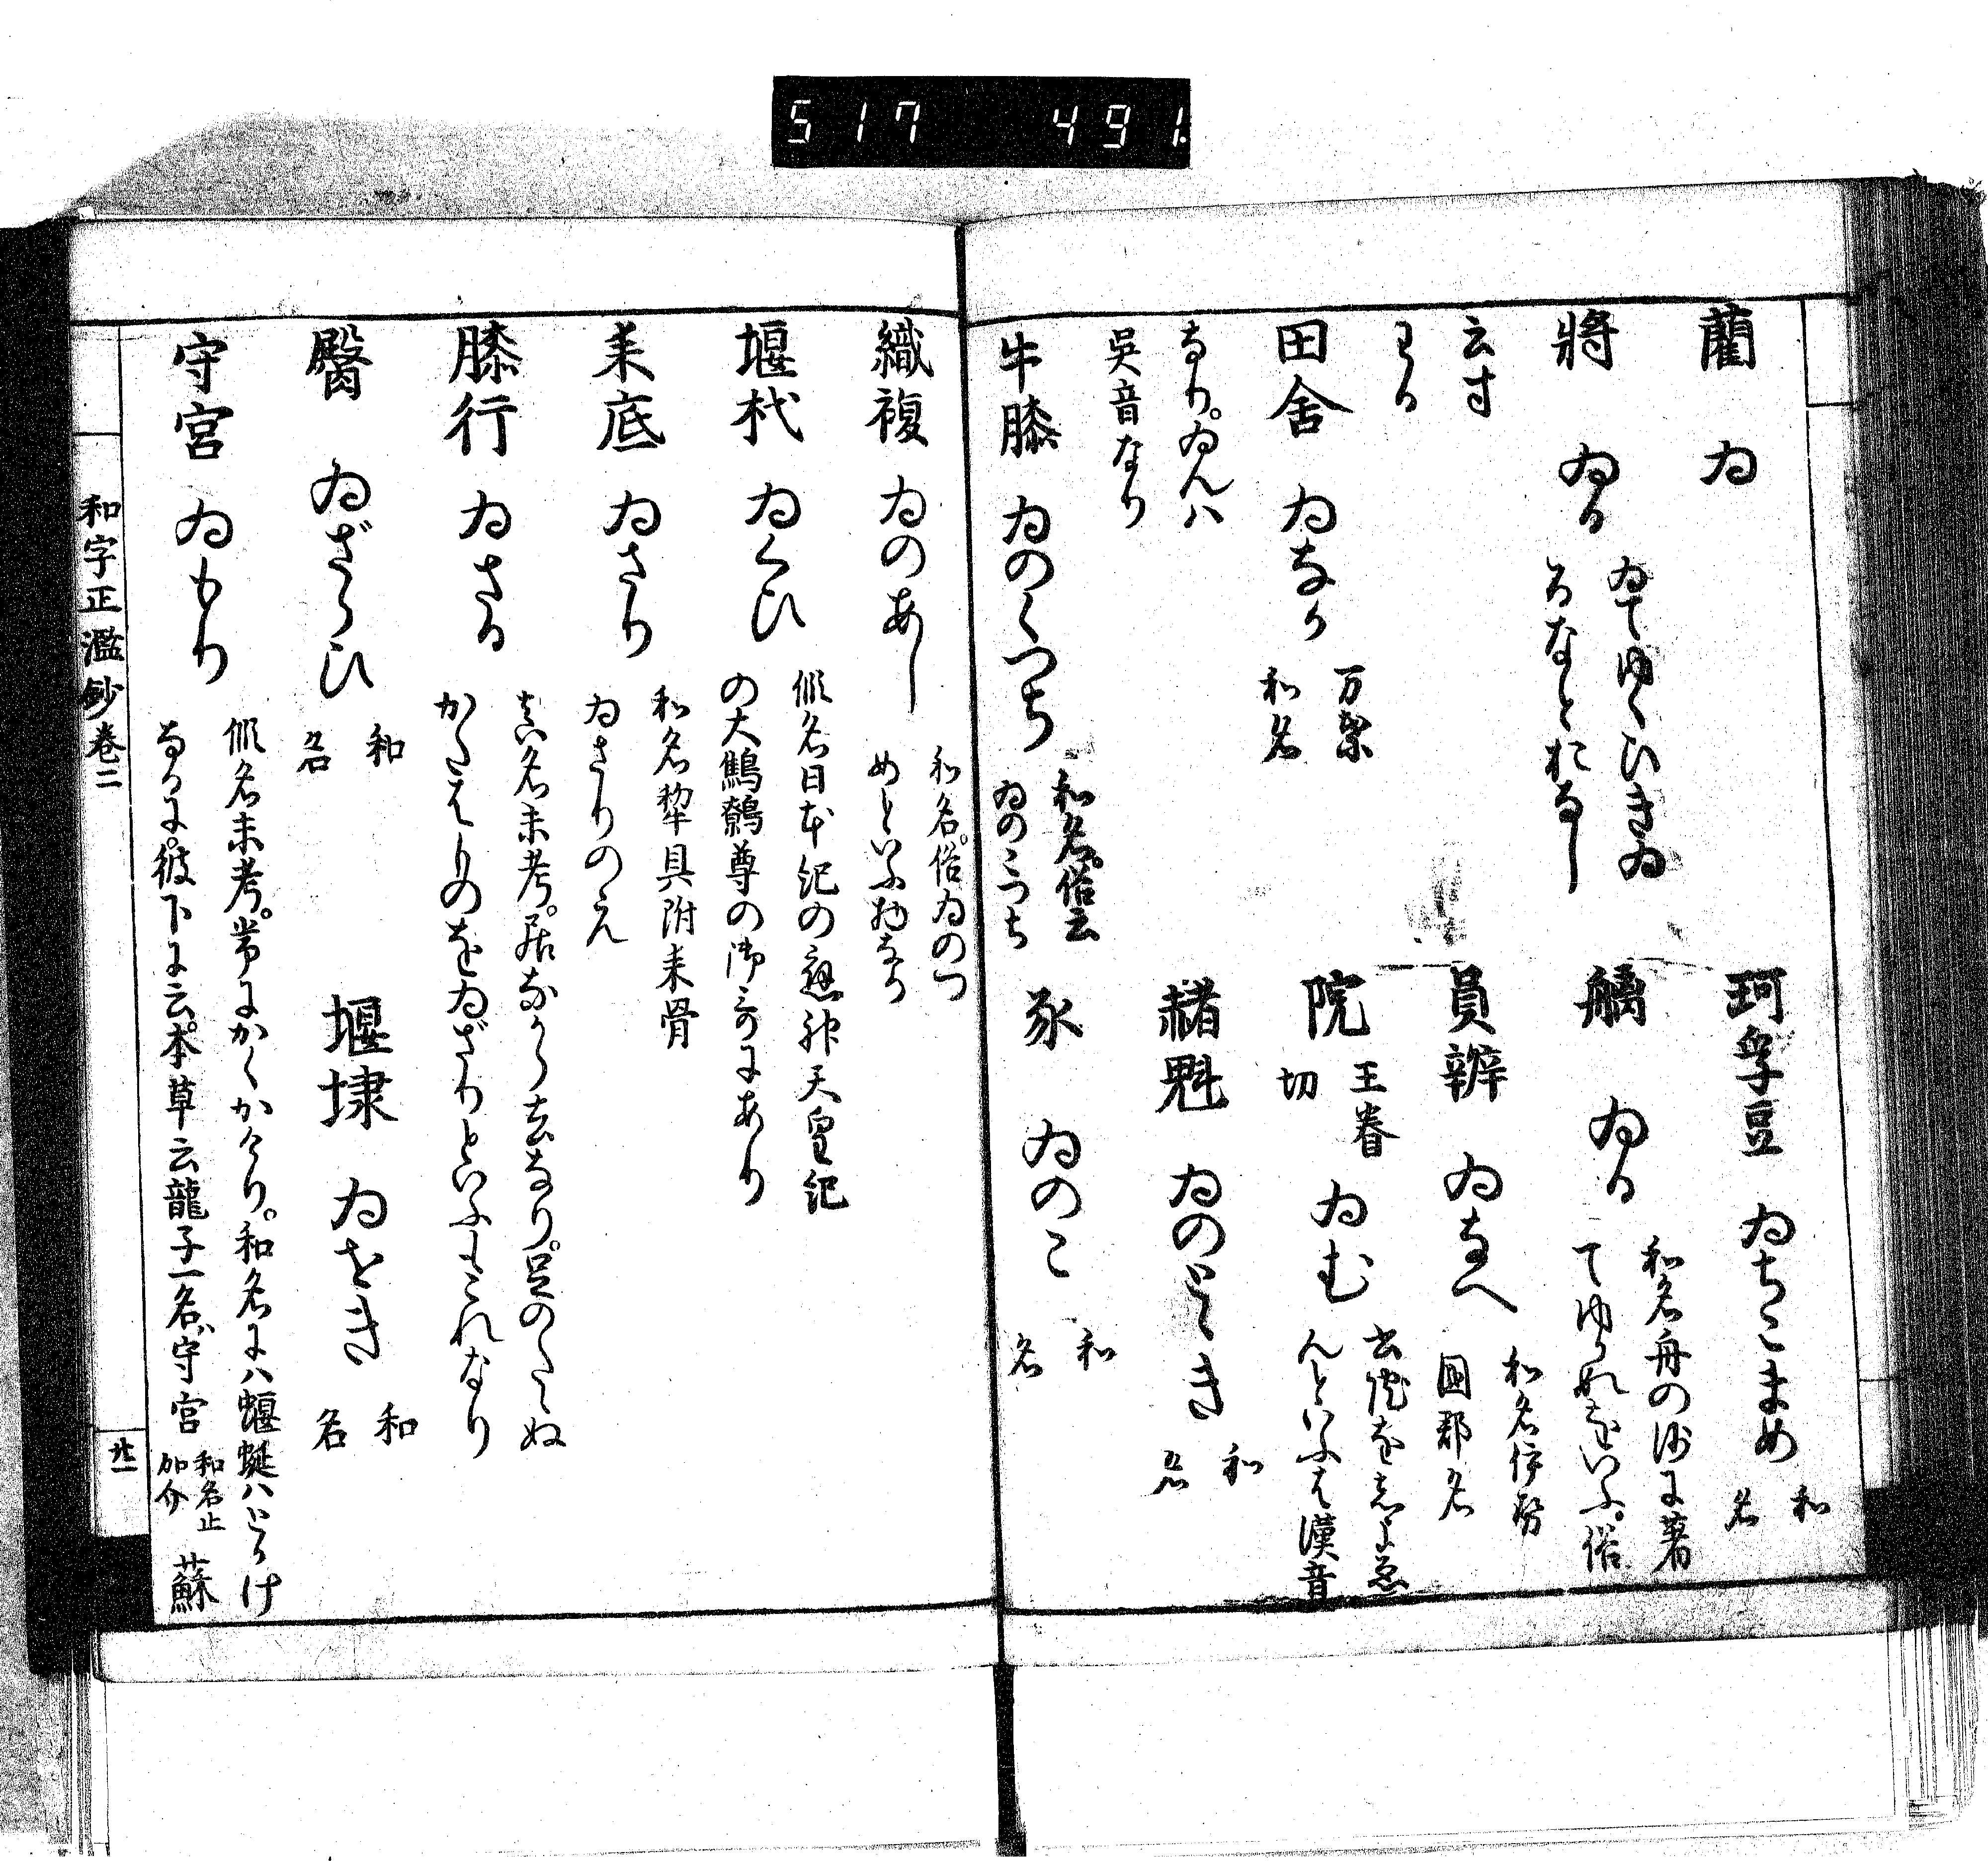 517 491.
藺 ゐ
珂孚豆 ゐちこまめ 和名
將 ゐる ゐてゆくひきゐ
るなとおなし
艑 ゐる 和名舟の沙に著
てゆかれぬをいふ。俗
云す
わる
員辨 ゐなへ 和名伊勢
國郡名
田舍 ゐなか 万葉
和名
院 王眷切 ゐむ
んといふは漢音
なり。ゐんハ
呉音なり
赭魁 ゐのとゝき 和名
牛膝 ゐのくつち 和名。俗云
ゐのこつち
豕 ゐのこ 和名
織複 ゐのあし 和名。俗ゐのつ
めといふ物なり
堰杙 ゐくひ 假名日本紀の應神天皇紀
の大鷦鷯尊の御哥にあり
耒底 ゐさり 和名犂具附耒骨
ゐさりのえ
膝行 ゐさる 真名未考。居なから去なり。足のたゝぬ
かたはものをゐざりといふもこれなり
臋 ゐざらひ 和名
堰埭 ゐせき 和名
守宮 ゐもり 假名未考。常にかくかけり。和名にハ蝘蜓ハとかけ
なるに。彼下に云。本草云龍子一名守宮 和名止加介 蘇
和字正濫鈔巻二
廿一